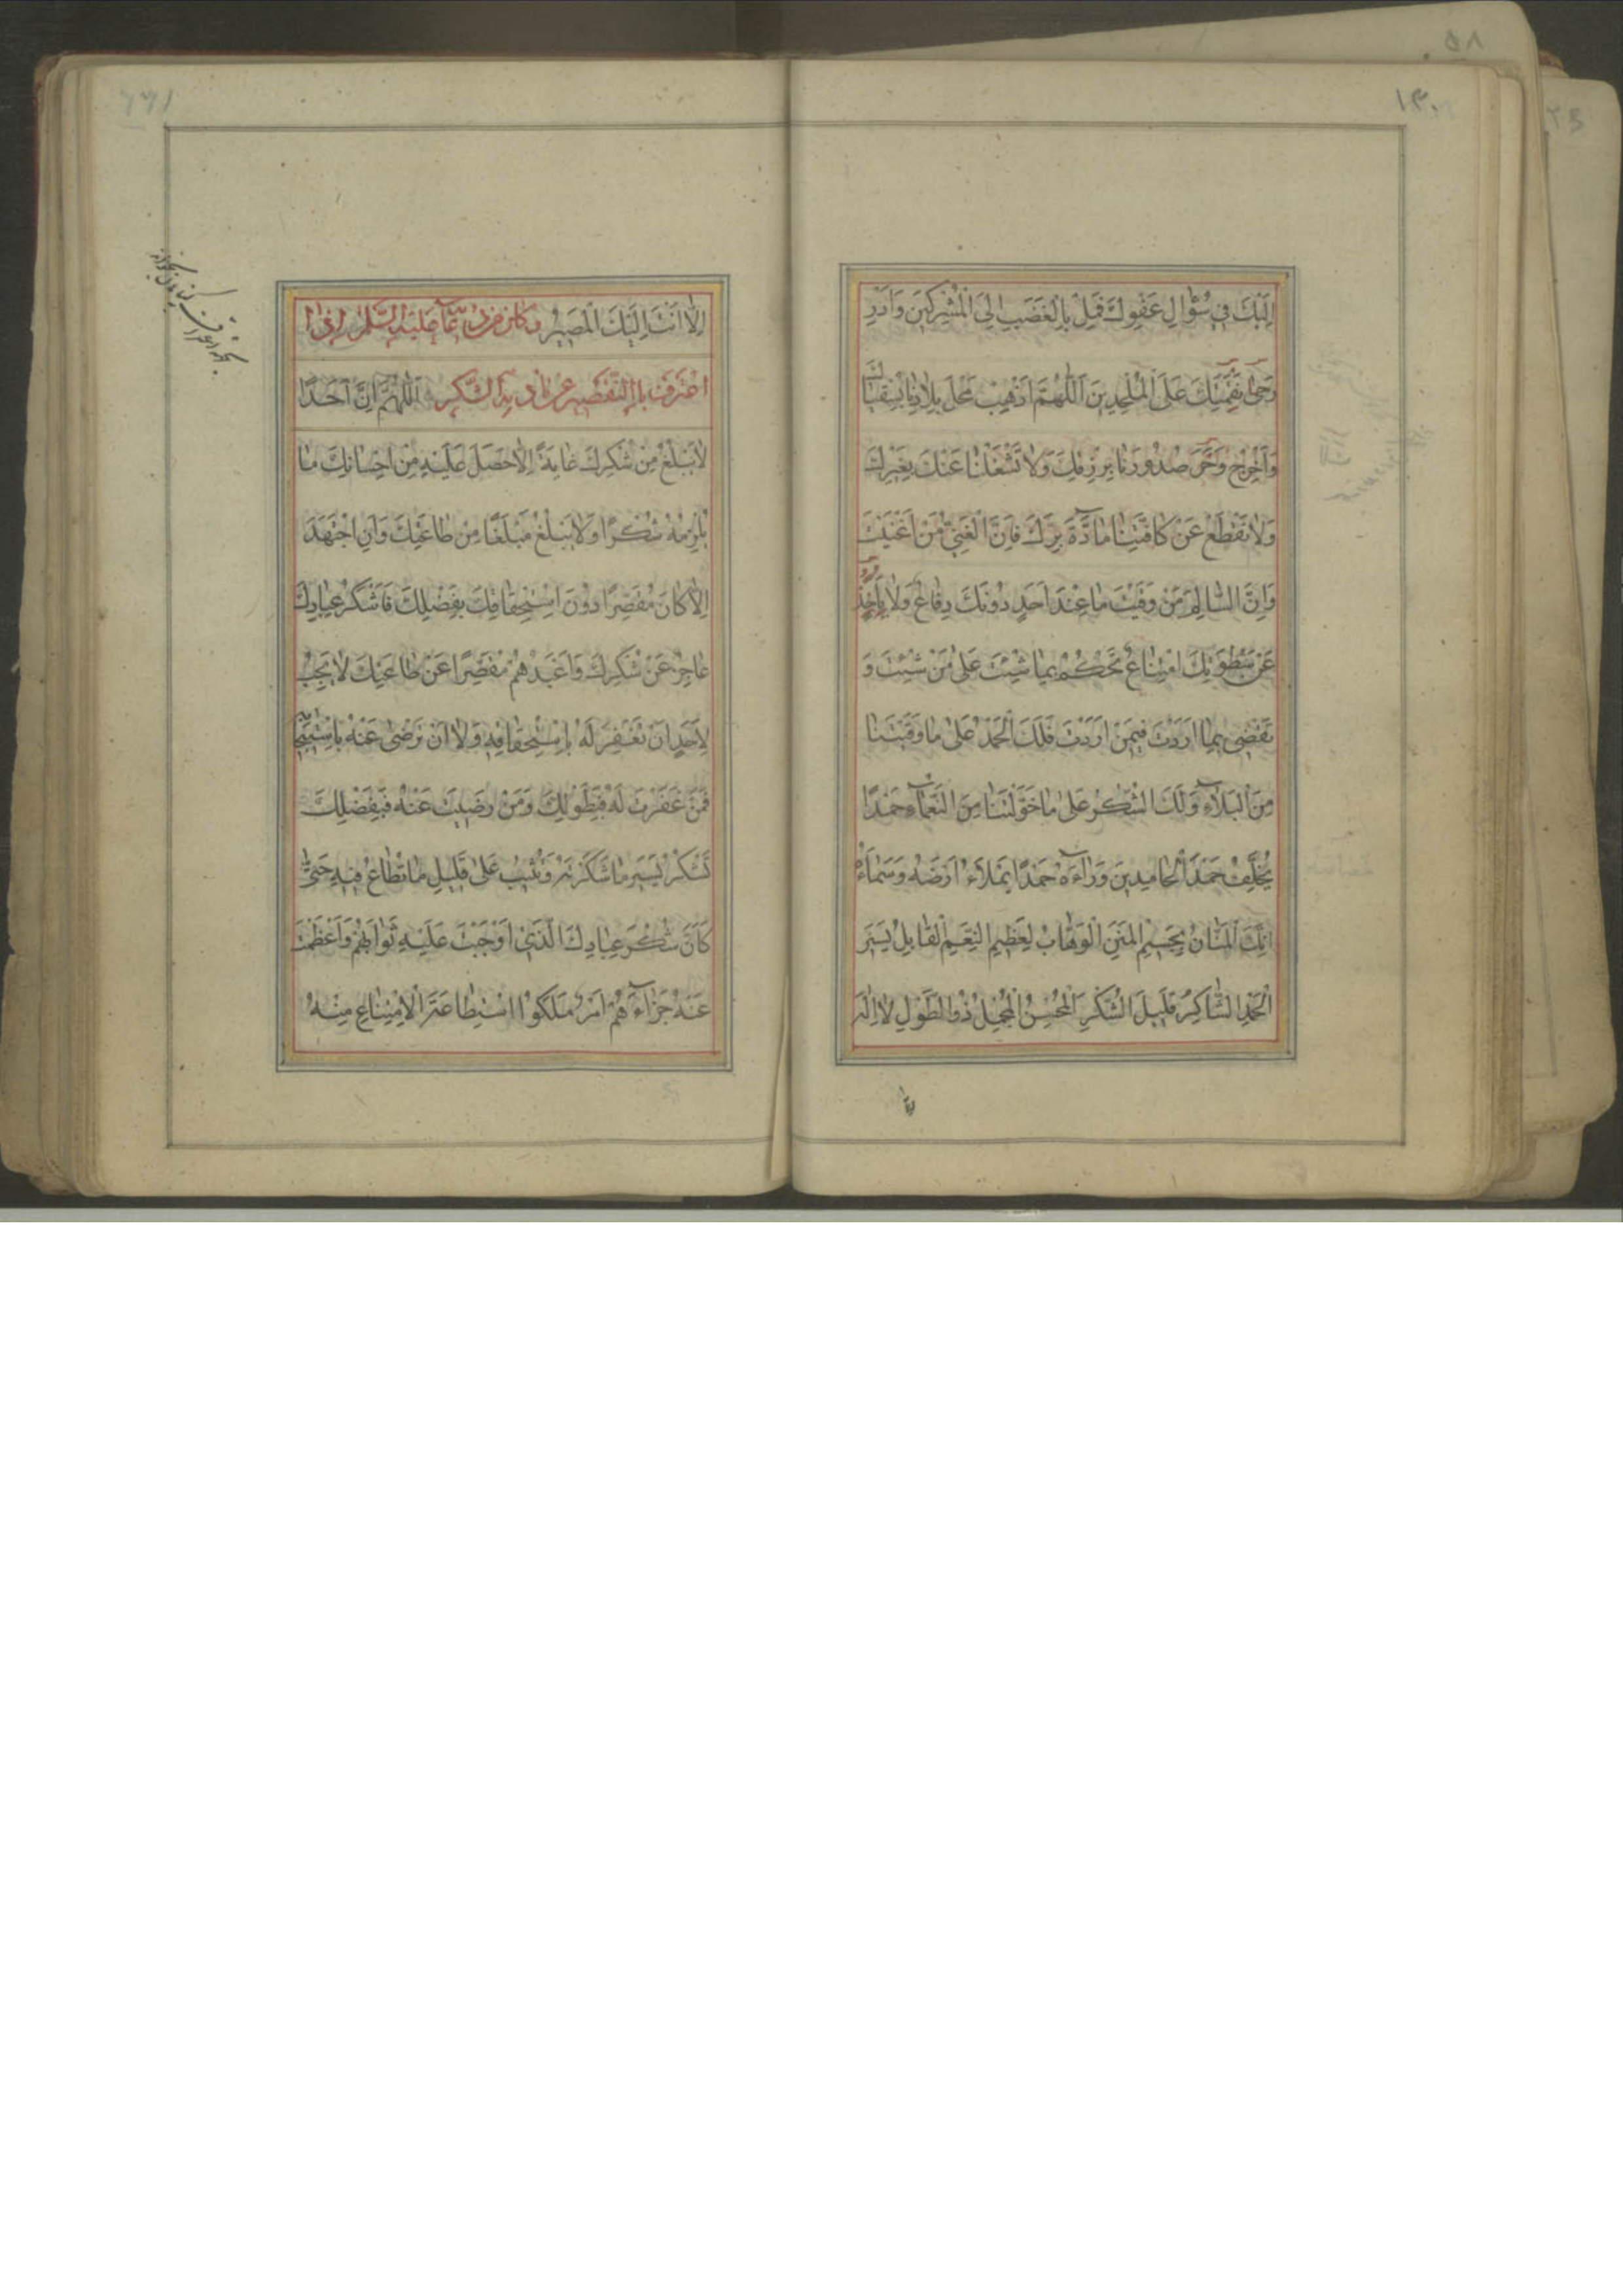 ١٣٠
اِلَيْكَ فِي سُؤٰالِ عَفْوِكَ فَمِلْ بِالْغَضَبِ اِلَى الْمُشْرِكِينَ وَاَدِرْ
رَحىٰ نَقِمَتِكَ عَلَى الْمُلْحِدِينَ اَللّٰهُمَّ اَذْهِبْ مَحْلَ بِلاٰدِنٰا بِسُقْيٰاكَ
وَاَخْرِجْ وَحَرَ صُدُورِنٰا بِرِزْقِكَ وَلاٰ تَشْغَلْنٰا عَنْكَ بِغَيْرِكَ
وَلاٰ تَقْطَعْ عَنْ كٰافَّتِنٰا مٰادَّةَ بِرِّكَ فَاِنَّ الْغَنِيَّ مَنْ اَغْنَيْتَ
وَاِنَّ السّٰالِمَ مَنْ وَقَيْتَ مٰا عِنْدَ اَحَدٍ دُونَكَ دِفٰاعٌ وَلاٰ بِاَحَدٍ
عَنْ سَطْوَتِكَ امْتِنٰاعٌ تَحْكُمُ بِمٰا شِئْتَ عَلىٰ مَنْ شِئْتَ وَ
تَقْضِي بِمٰا اَرَدْتَ فِيمَنْ اَرَدْتَ فَلَكَ الْحَمْدُ عَلىٰ مٰا وَقَيْتَنٰا
مِنَ الْبَلاٰءِ وَلَكَ الشُّكْرُ عَلىٰ مٰا خَوَّلْتَنٰا مِنَ النَّعْمٰاءِ حَمْدًا
يُخَلِّفُ حَمْدَ الْحٰامِدِينَ وَرٰاءَهُ حَمْدًا يَمْلَاُ اَرْضَهُ وَسَمٰاءَهُ
اِنَّكَ الْمَنّٰانُ بِجَسِيمِ الْمِنَنِ الْوَهّٰابُ لِعَظِيمِ النِّعَمِ الْقٰابِلُ يَسِيرَ
الْحَمْدِ الشّٰاكِرُ قَلِيلَ الشُّكْرِ الْمُحْسِنُ الْمُجْمِلُ ذُوالطَّوْلِ لاٰ اِلٰهَ
اِلاّٰ اَنْتَ اِلَيْكَ الْمَصِيرُ وكان من دعائه عليه السلام اذا
اعترف بالتقصير عن تادية الشكر اَللّٰهُمَّ اِنَّ اَحَدًا
لاٰ يَبْلُغُ مِنْ شُكْرِكَ غٰايَةً اِلاّٰ حَصَلَ عَلَيْهِ مِنْ اِحْسٰانِكَ مٰا
يُلْزِمُهُ شُكْرًا وَلاٰ يَبْلُغُ مَبْلَغًا مِنْ طٰاعَتِكَ وَاِنِ اجْتَهَدَ
اِلاّٰ كٰانَ مُقَصِّرًا دُونَ اسْتِحْقٰاقِكَ بِفَضْلِكَ فَاَشْكَرُ عِبٰادِكَ
عٰاجِزٌ عَنْ شُكْرِكَ وَاَعْبَدُهُمْ مُقَصِّرٌ عَنْ طٰاعَتِكَ لاٰ يَجِبُ
لِاَحَدٍ اَنْ تَغْفِرَ لَهُ بِاسْتِحْقٰاقِهِ وَلاٰ اَنْ تَرْضىٰ عَنْهُ بِاسْتِيجٰابِهِ
فَمَنْ غَفَرْتَ لَهُ فَبِطَوْلِكَ وَمَنْ رَضِيتَ عَنْهُ فَبِفَضْلِكَ
تَشْكُرُ يَسِيرَ مٰا شَكَرْتَهُ وَتُثِيبُ عَلىٰ قَلِيلِ مٰا تُطٰاعُ فِيهِ حَتّىٰ
كَاَنَّ شُكْرَ عِبٰادِكَ الَّذِي اَوْجَبْتَ عَلَيْهِ ثَوٰابَهُمْ وَاَعْظَمْتَ
عَنْهُ جَزٰاءَهُمْ اَمْرٌ مَلَكُوا اسْتِطٰاعَةَ الْاِمْتِنٰاعِ مِنْهُ